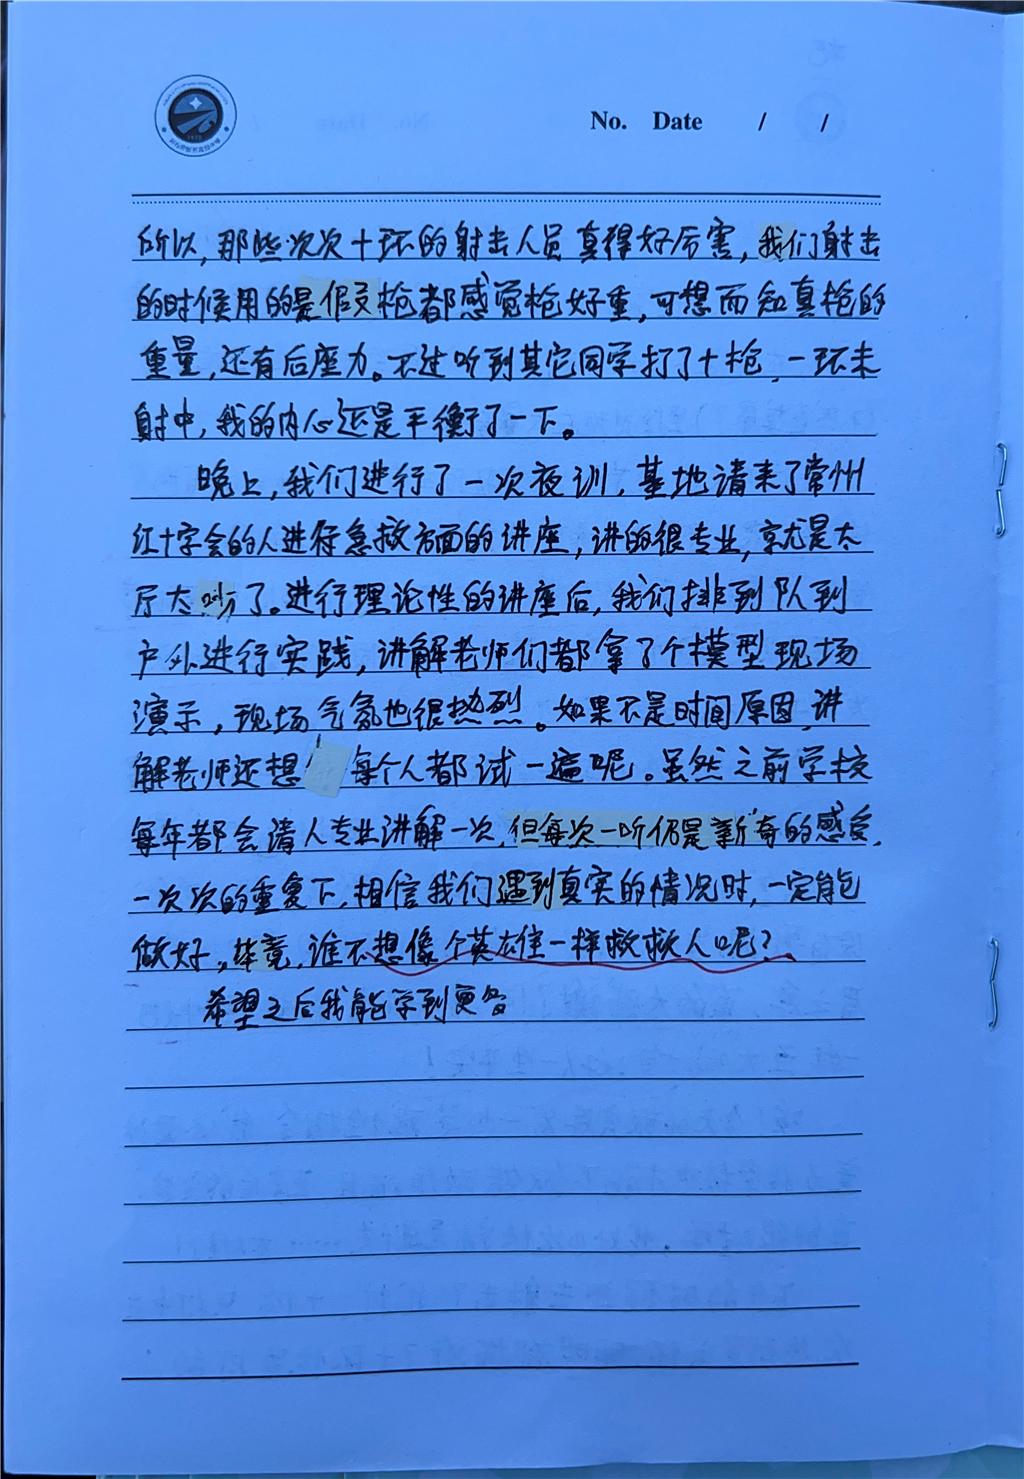 No. Date / /
所以,那些次次十环的射击人员真得好厉害,我们射击
的时候用的是假枪都感觉枪好重,可想而知真枪的
重量,还有后座力。不过听到其它同学打了十枪,一环未
射中,我的内心还是平衡了一下。
晚上,我们进行了一次夜训,基地请来了常州
红十字会的人进行急救方面的讲座,讲的很专业,就是大
厅太吵了。进行理论性的讲座后,我们排到队到
户外进行实践,讲解老师们都拿了个模型现场
演示,现场气氛也很热烈。如果不是时间原因,讲
解老师还想每个人都试一遍呢。虽然之前学校
每年都会请人专业讲解一次,但每次一听仍是新奇的感受,
一次次的重复下,相信我们遇到真实的情况时,一定能
做好,毕竟,谁不想像个英雄一样救救人呢?
希望之后我能学到更多